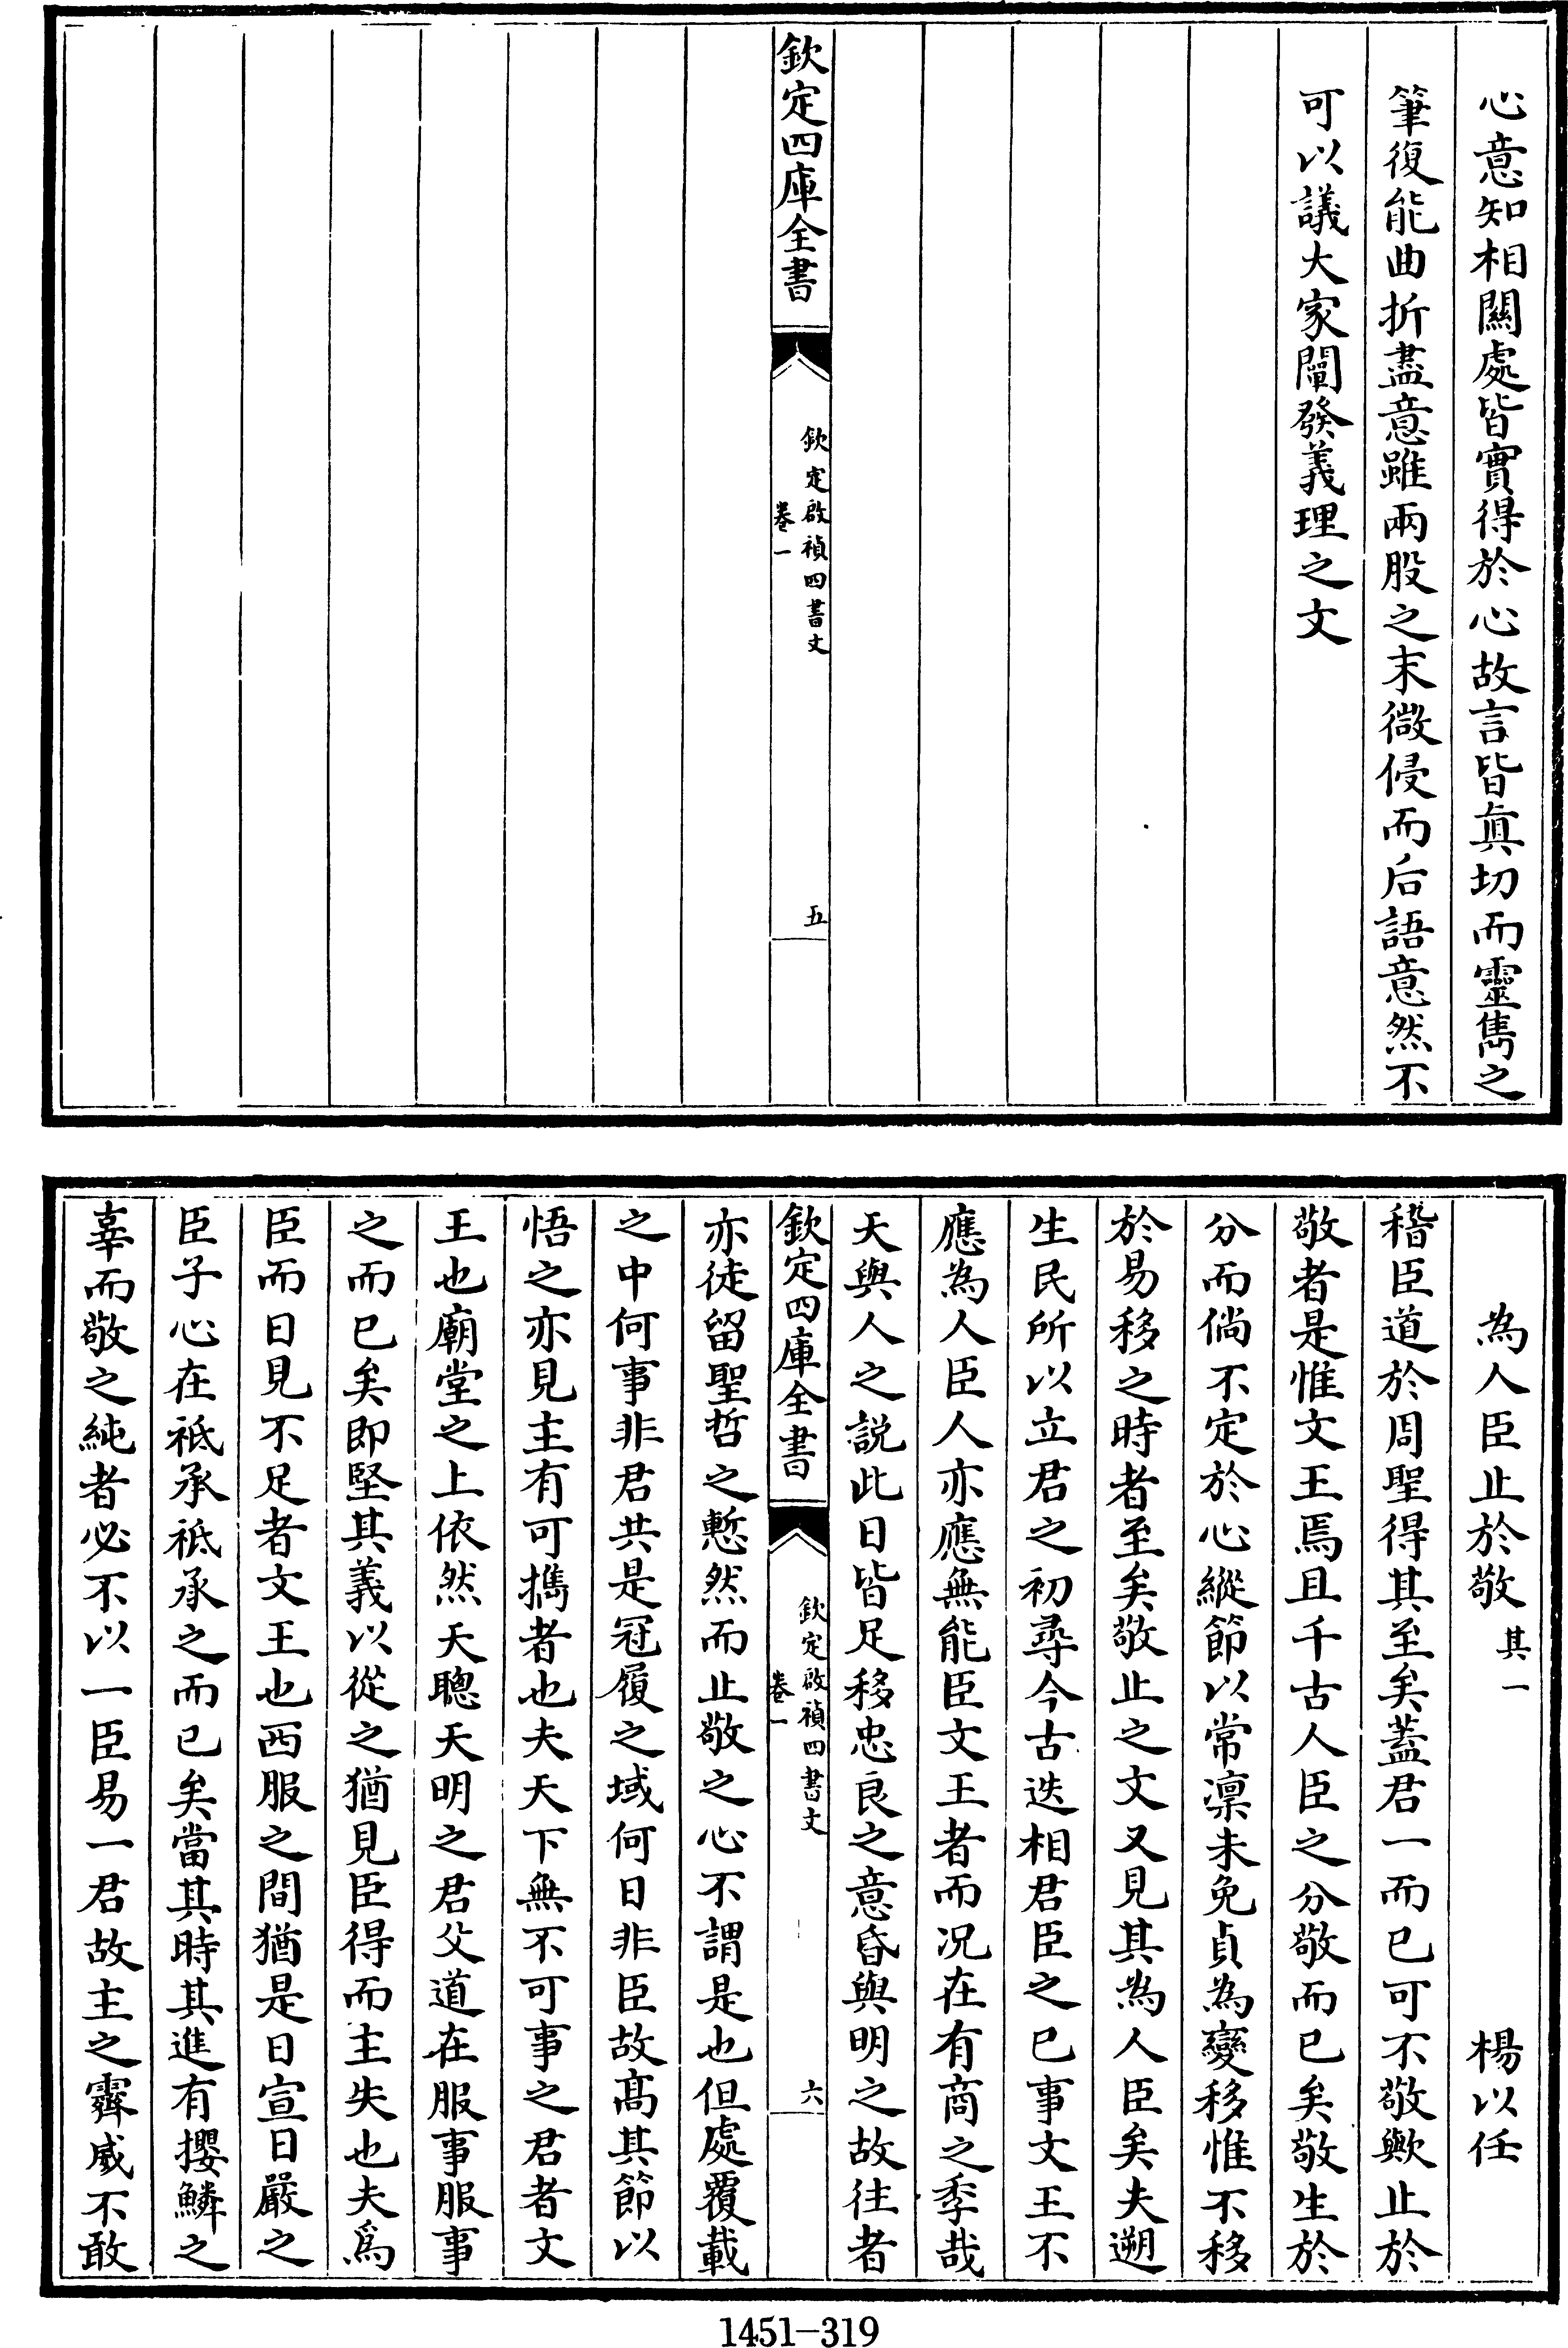 心意知相關處皆實得於心故言皆真切而靈雋之
筆復能曲折盡意雖兩股之末微侵而后語意然不
可以議大家闡發義理之文
欽定四庫全書
欽定啟禎四書文
卷一
五
為人臣止於敬 其一 楊以任
稽臣道於周聖得其至矣蓋君一而已可不敬歟止於
敬者是惟文王焉且千古人臣之分敬而已矣敬生於
分而倘不定於心縱節以常凜未免貞為變移惟不移
於易移之時者至矣敬止之文又見其為人臣矣夫遡
生民所以立君之初尋今古迭相君臣之已事文王不
應為人臣人亦應無能臣文王者而况在有商之季哉
天與人之説此日皆足移忠良之意昏與明之故往者
欽定四庫全書
欽定啟禎四書文
卷一
六
亦徒留聖哲之慙然而止敬之心不謂是也但處覆載
之中何事非君共是冠履之域何日非臣故髙其節以
悟之亦見主有可擕者也夫天下無不可事之君者文
王也廟堂之上依然天聰天明之君父道在服事服事
之而已矣即堅其義以從之猶見臣得而主失也夫爲
臣而日見不足者文王也西服之間猶是日宣日嚴之
臣子心在祇承祇承之而已矣當其時其進有攖鱗之
辜而敬之純者必不以一臣易一君故主之霽威不敢
1451-319